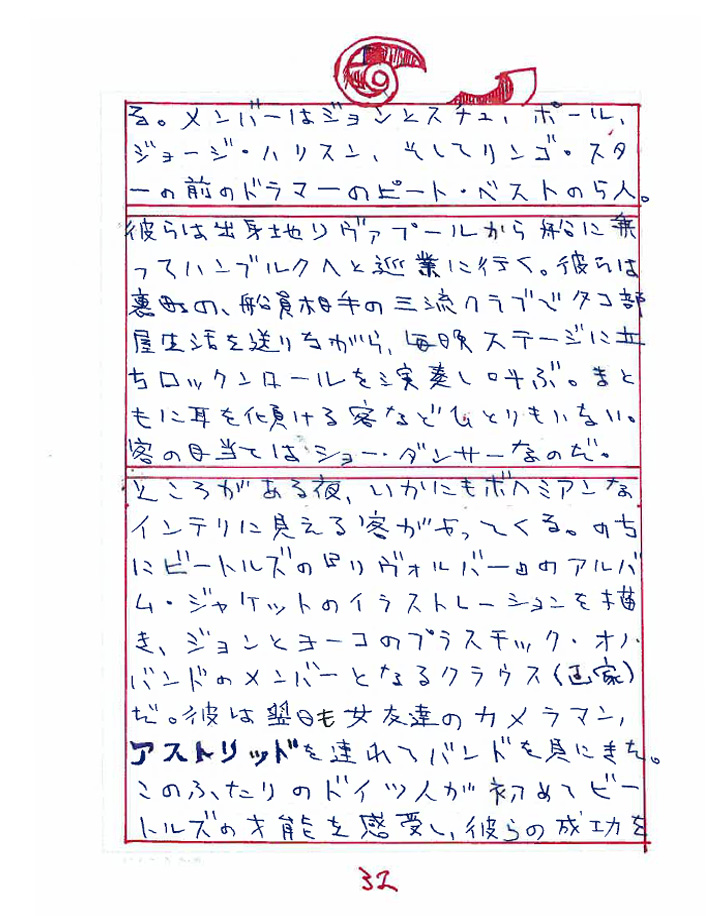 る。メンバーはジョンとスチュ、ポール、
ジョージ・ハリスン、そしてリンゴ・スタ
ーの前のドラマーのピート・ベストの5人。
彼らは出身地リヴァプールから船に乗
ってハンブルクへと巡業に行く。彼らは
裏町の、船員相手の三流クラブでタコ部
屋生活を送りながら、毎晩ステージに立
ちロックンロールを演奏し叫ぶ。まと
もに耳を傾ける客などひとりもいない。
客の目当てはショー・ダンサーなのだ。
ところがある夜、いかにもボヘミアンな
インテリに見える客がやってくる。のち
にビートルズの『リヴォルバー』のアルバ
ム・ジャケットのイラストレーションを描
き、ジョンとヨーコのプラスチック・オノ・
バンドのメンバーとなるクラウス(画家)
だ。彼は翌日も女友達のカメラマン、
アストリッドを連れてバンドを見にきた。
このふたりのドイツ人が初めてビー
トルズの才能を感受し、彼らの成功を
32